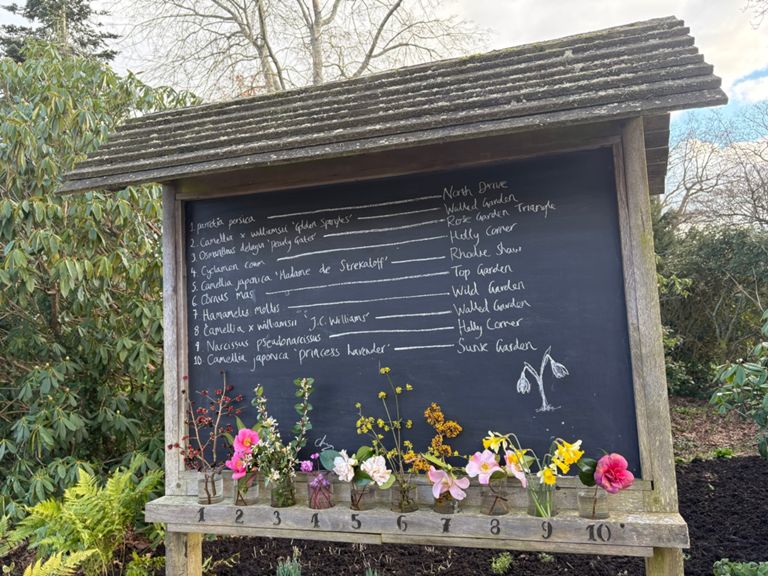 1. parrotia persica North Drive
2. Camellia x williamsii 'Golden Spangles' Walled Garden
3 Osmanthus delavayi 'Pearly Gates' Rose Garden Triangle
4. Cyclamen coum Holly Corner
5 Camellia japonica 'Madame de Strekaloff' Rhodie Shaw
6 Cornus mas Top Garden
7 Hamamelis mollis Wild Garden
8 Camellia x williamsii 'J.C. Williams' Walled Garden
9 Narcissus pseudonarcissus Holly Corner
10 Camellia japonica 'princess lavender' Sunk Garden
1 2 3 4 5 6 7 8 9 10